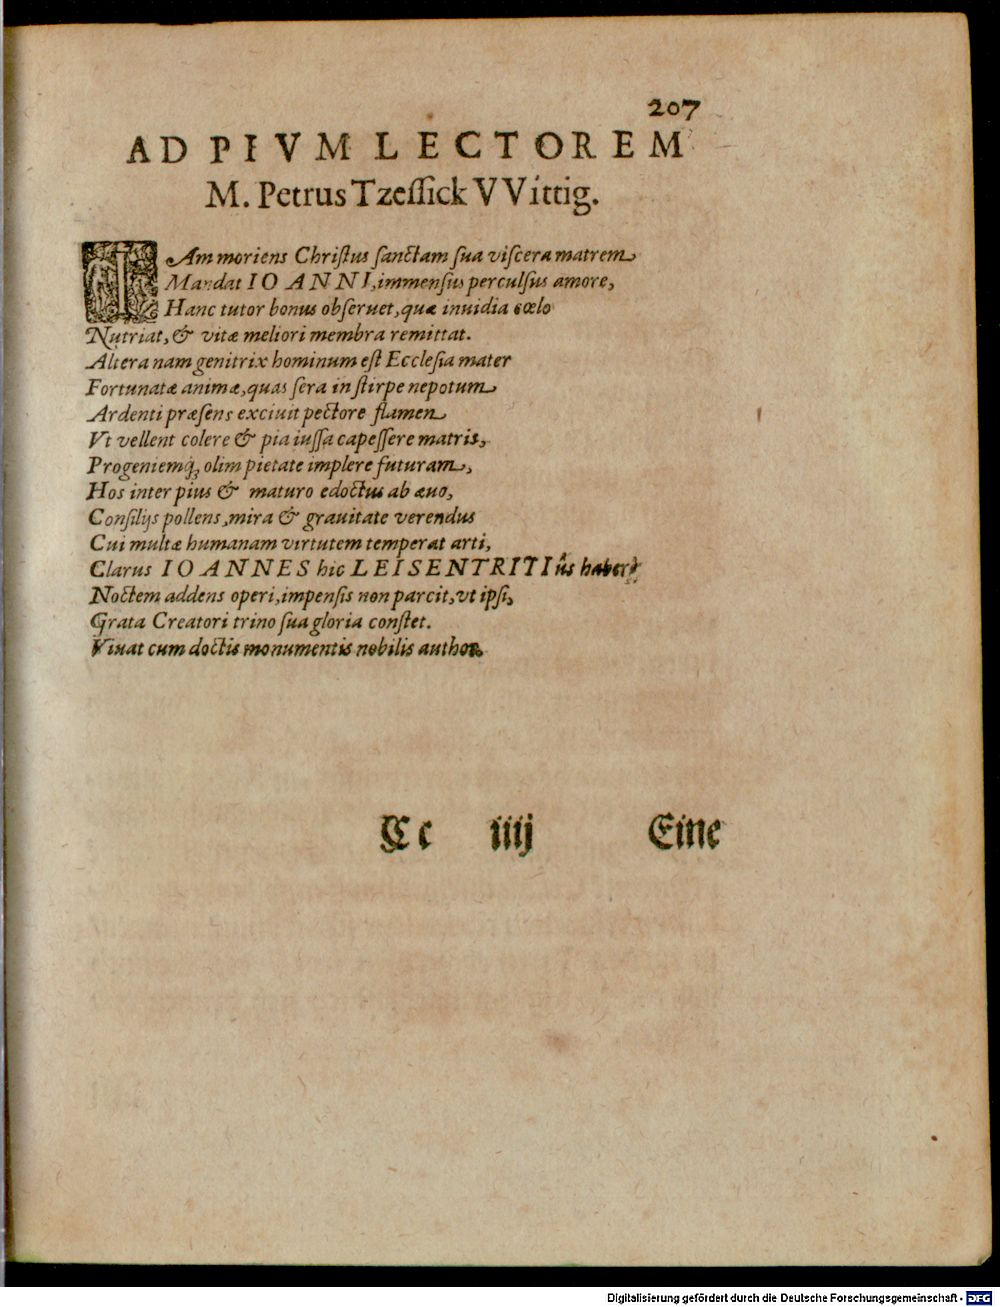 207
AD PIVM LECTOREM
M. Petrus Tzeſſick VVittig.
IAm moriens Chriſtus ſanctam ſua viſcera matrem
Mandat IOANNI, immenſus perculſus amore,
Hanc tutor bonus obſeruet, quæ inuidia cœlo
Nutriat, & vitæ meliori membra remittat.
Altera nam genitrix hominum eſt Eccleſia mater
Fortunatæ animæ, quas ſera in ſtirpe nepotum
Ardenti præſens exciuit pectore flamen
Vt vellent colere & pia iuſſa capeſſere matris,
Progeniemq́ꝫ olim pietate implere futuram,
Hos inter pius & maturo edoctus ab æuo,
Conſilijs pollens, mira & grauitate verendus
Cui multæ humanam virtutem temperat arti,
Clarus IOANNES hic LEISENTRITIus
Noctem addens operi, impenſis non parcit, vt ipſi,
Grata Creatori trino ſua gloria conſtet.
Viuat cum doctis monumentis nobilis author.
Cc iiij Eine
Digitalisierung gefördert durch die Deutsche Forschungsgemeinschaft - DFG